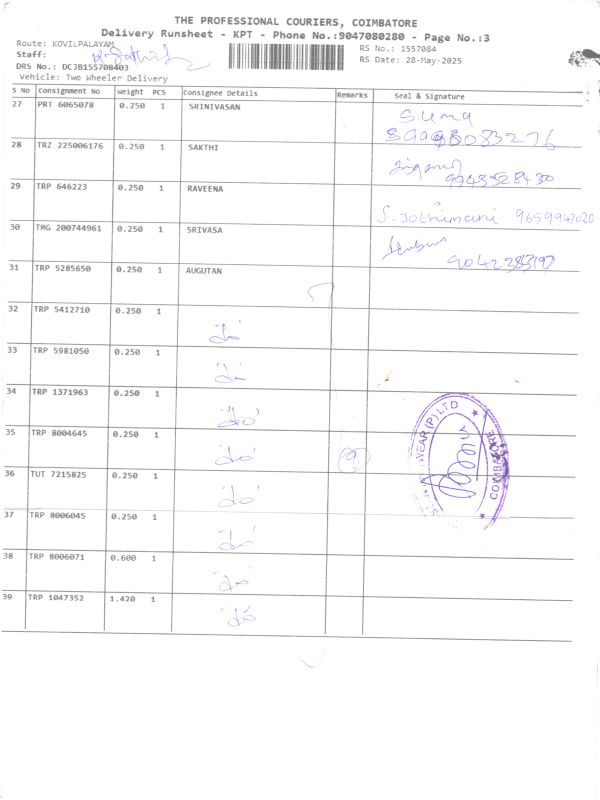 THE PROFESSIONAL COURIERS, COIMBATORE
Delivery Runsheet - KPT - Phone No.:9047080280 - Page No.:3
Route: KOVILPALAYAM
RS No.: 1557084
Staff:
RS Date: 28-May-2025
DRS No.: DCJB155708403
Vehicle: Two Wheeler Delivery
S No Consignment No Weight PCS Consignee Details Remarks Seal & Signature
27 PRT 6065078 0.250 1 SRINIVASAN S.uma
28 TRZ 225006176 0.250 1 SAKTHI 9943528430
29 TRP 646223 0.250 1 RAVEENA S. Jothimani 9659947020
30 TMG 200744961 0.250 1 SRIVASA
31 TRP 5285650 0.250 1 AUGUTAN
32 TRP 5412710 0.250 1 do
33 TRP 5981050 0.250 1 do
34 TRP 1371963 0.250 1 do
35 TRP 8004645 0.250 1 do 9
36 TUT 7215825 0.250 1 do
37 TRP 8006045 0.250 1 do
38 TRP 8006071 0.600 1 do
39 TRP 1047352 1.420 1 do
WEAR (P) LTD
COIMBATORE